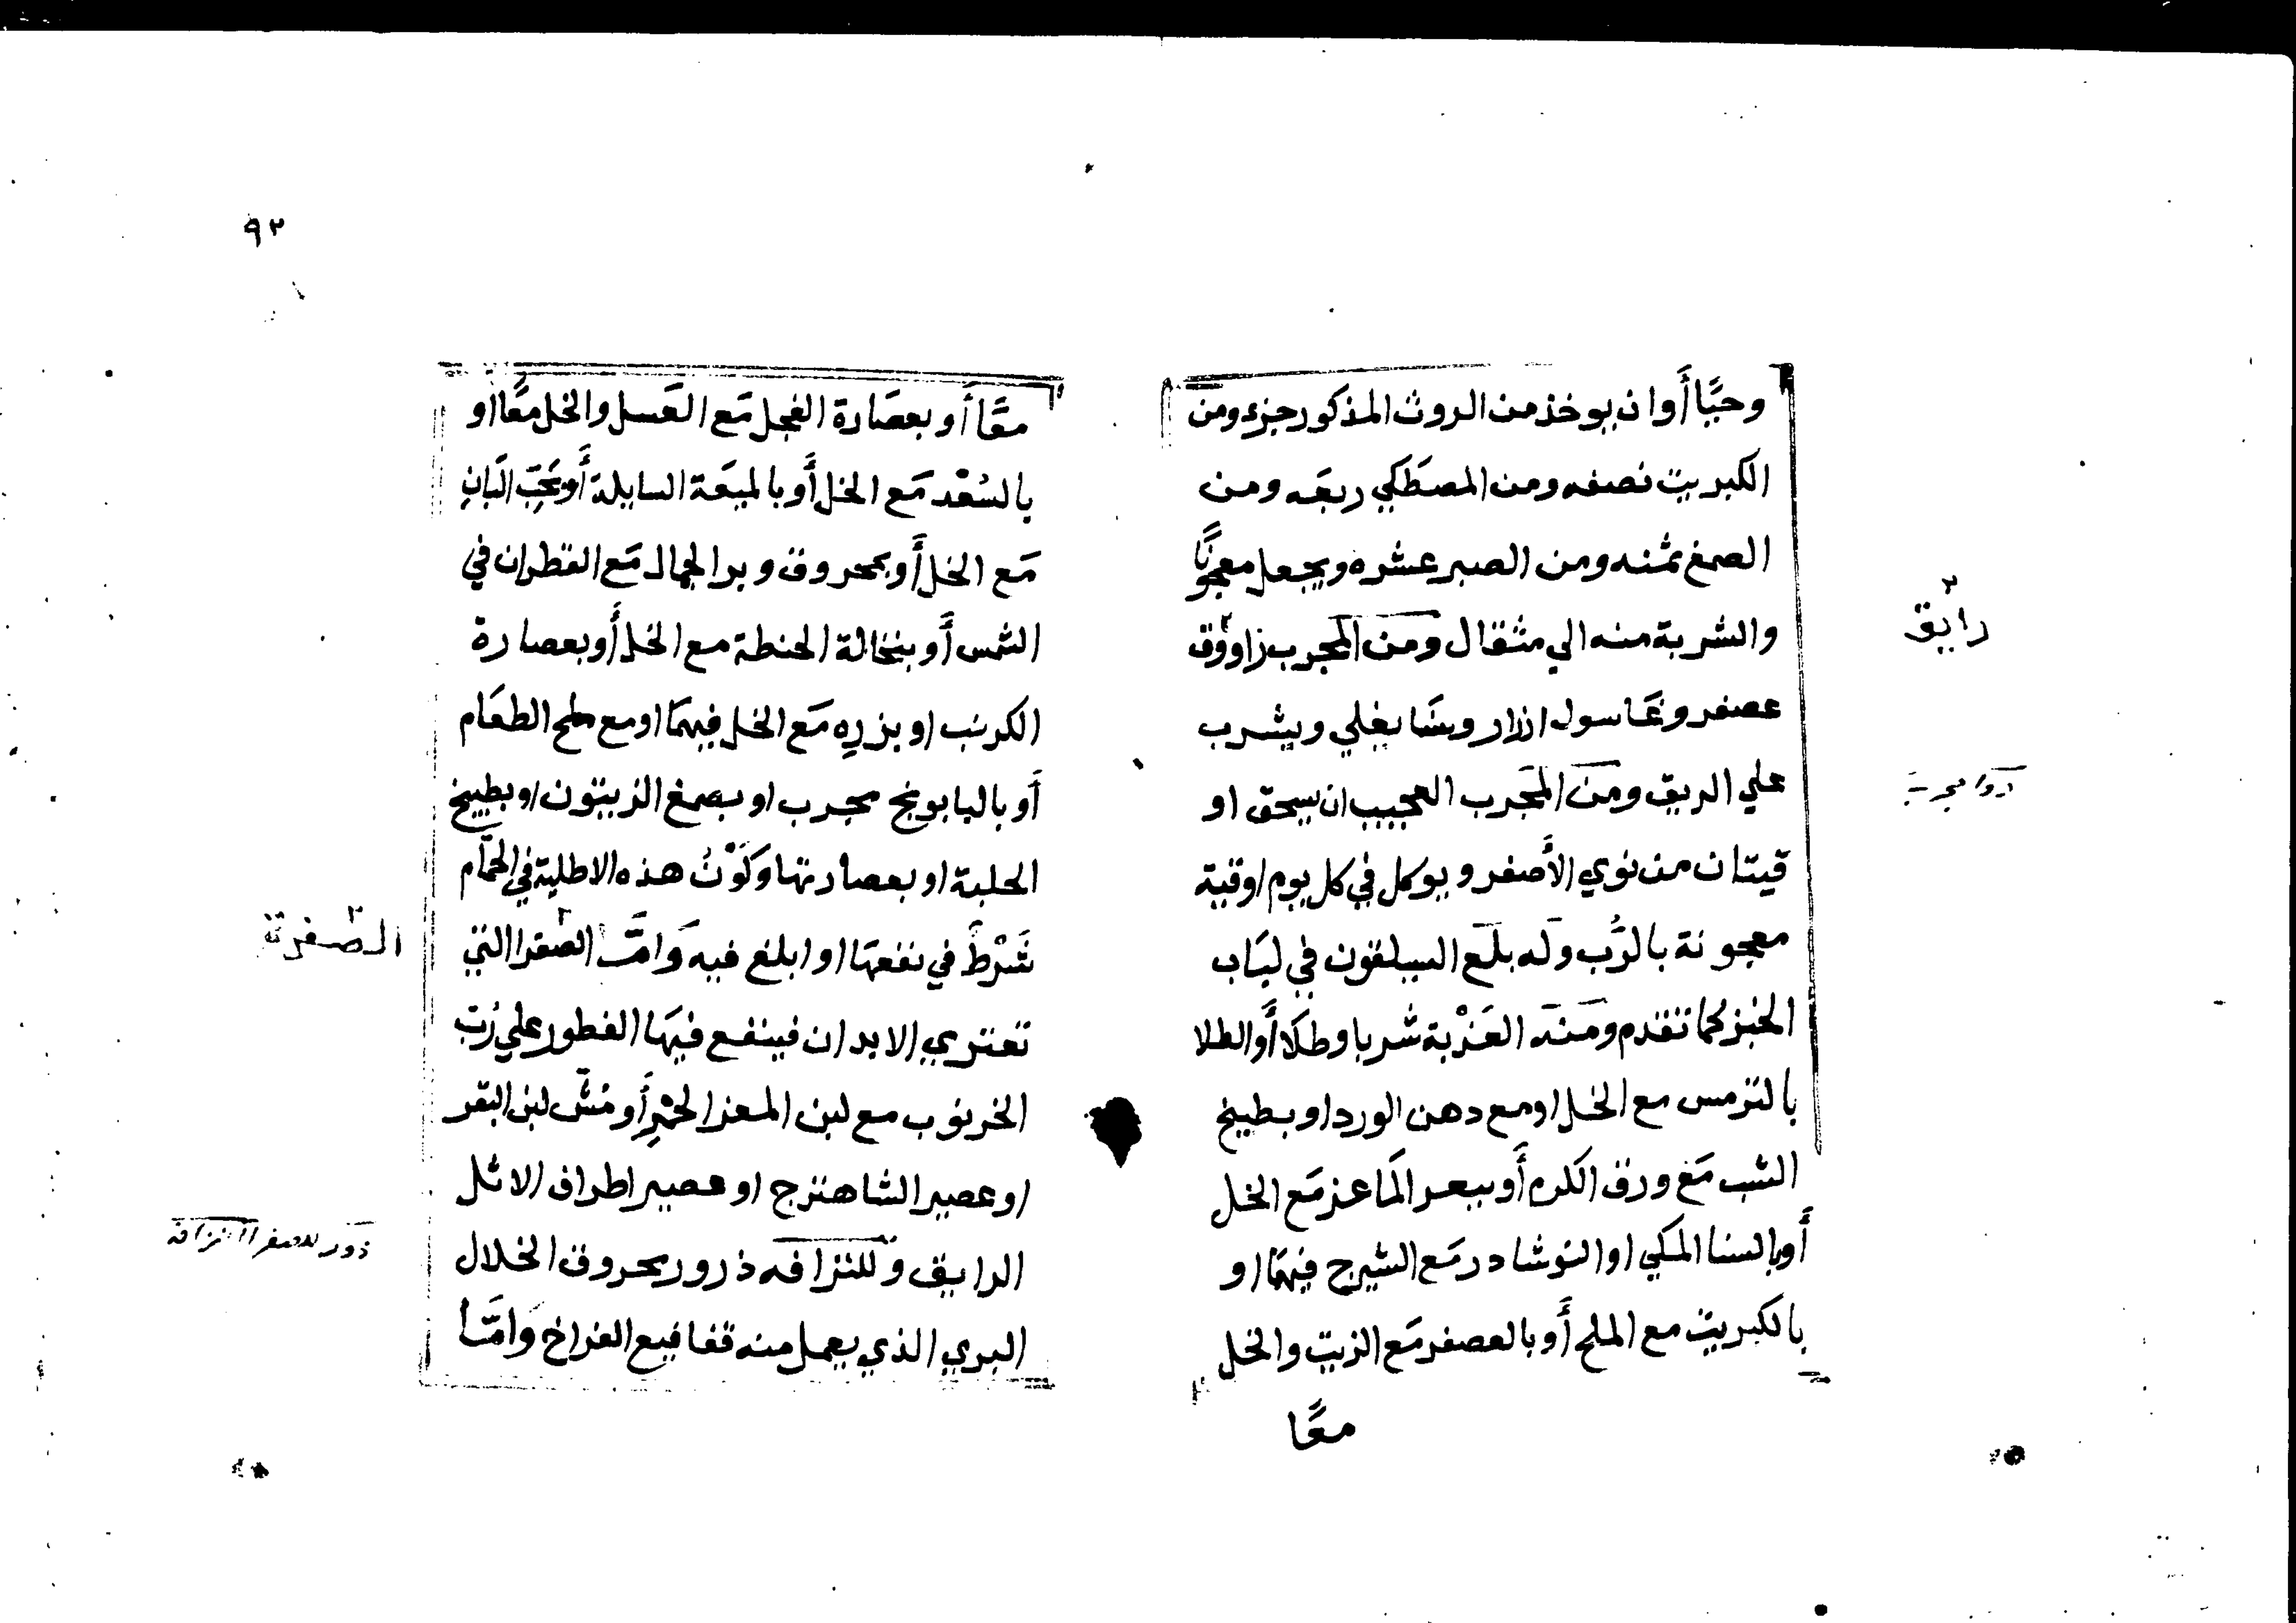 وحبًّا أَو ان يوخذ من الروث المذكور جزء ومن
الكبريت نصفه ومن المصطكي ربعه ومن
الصمغ ثمنه ومن الصبر عشره ويجعل معجونًا
والشربة منه الي مثقال ومن المجرب زاووق
رايق
عصفر وغاسول ازرار وسنا يغلي ويشرب
علي الريق ومن المجرب العجيب ان يسحق او
دواء مجرب
قيتان من نوي الأصفر ويوكل في كل يوم اوقية
معجونة بالرُّب وله بلع السيلقون في لباب
الخبز كما تقدم ومنه العَذْبة شربا وطلا أَو الطلا
بالترمس مع الخل او مع دهن الورد او بطبيخ
الشب مع ورق الكرم أَو ببعر الماعز مَع الخل
أَو بالسنا المكي او النوشادر مَع الشيرج فيهما او
بالكبريت مع الملح أَو بالعصفر مَع الزيت والخل
معًا
٩٣
معًا أو بعصَارة الفجل مَع العَسل والخل معًا او
بالسُعْد مَع الخل أَو بالميعَة السايلة أَو بحَبِّ البَانِ
مَع الخل أَو بمحروق وبر الجمال مَع القطران في
الشمس أَو بنخالة الحنطة مع الخل أَو بعصارة
الكرنب او بزرِه مَع الخل فيهمَا او مع ملح الطعَام
أَو بالبابونج مجرب او بصمغ الزيتون او بطبيخ
الحلبة او بعصارتها وكَوْنُ هذه الاطلية في الحمَّام
شَرْطٌ في نفعهَا او ابلغ فيه وَامَّا الصّفرا التي
الصّفرة
تعتري الابدان فينفع فيهَا الفطور علي رُبّ
الخرنوب مع لبن المعز الحُمْرِ أَو مَشّ لبن البقر
او عصير الشاهترج او عصير اطراف الاثل
الرايق وللنزافه ذرور بحروق الخلال
ذرور للصفرا النزافه
البري الذي يعمل منه قفافيع الفراخ وَامَّا